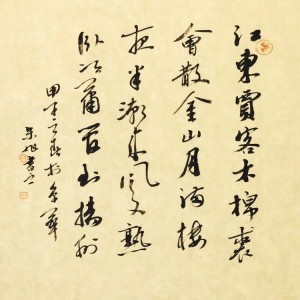 江東賈客木棉裘
會散金山月滿樓
夜半潮來風又熟
臥吹簫管到揚州
甲午春於京華
書